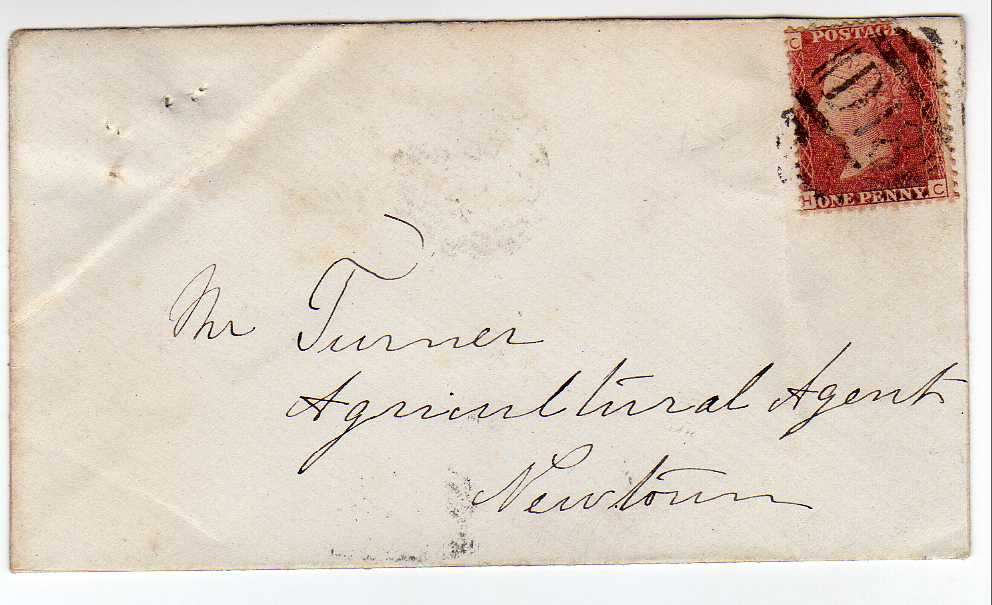 C POSTAGE
H ONE PENNY. C
Mr Turner
Agricultural Agent
Newtown